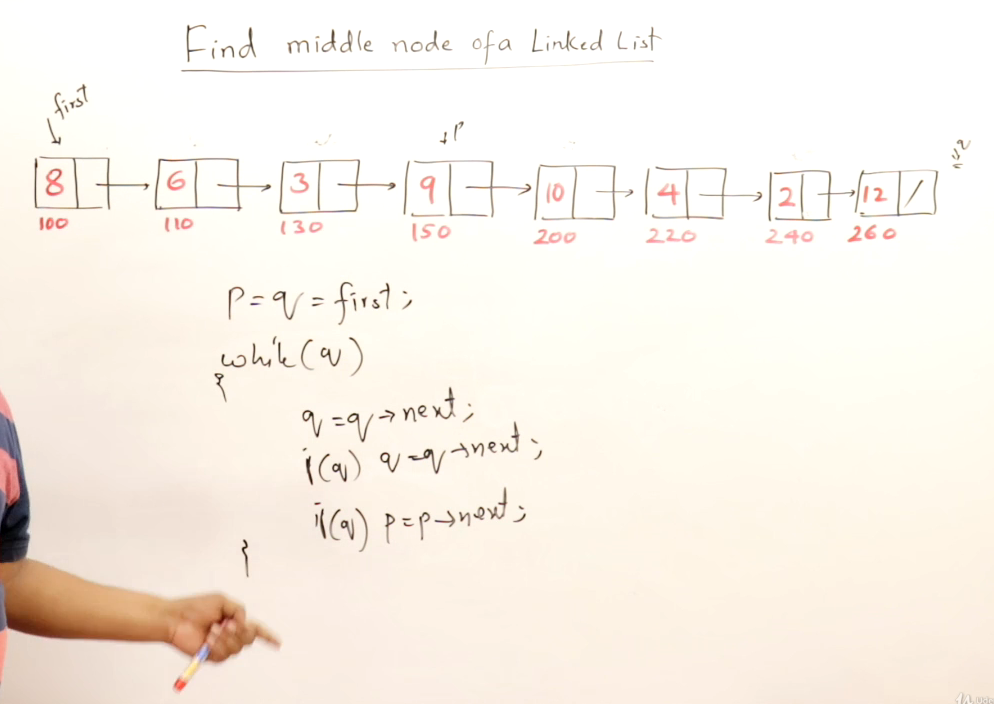 Find middle node of a Linked List
first
P
8 6 3 9 10 4 2 12 /
100 110 130 150 200 220 240 260
P = q = first;
while(q)
{
q = q→next;
if(q) q = q→next;
if(q) p = p→next;
}